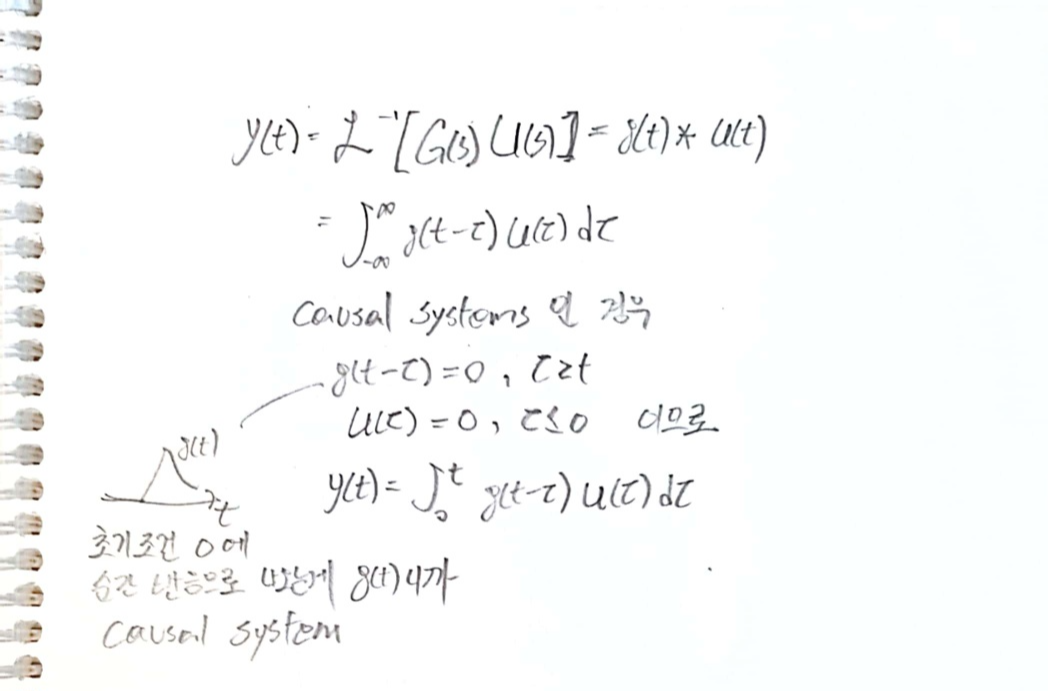 y(t) = ℒ⁻¹[G(s) U(s)] = g(t) * u(t)
= ∫_{-∞}^{∞} g(t-τ) u(τ) dτ
causal systems 인 경우
g(t-τ) = 0 , τ≥t
u(τ) = 0 , τ≤0 이므로
g(t)
y(t) = ∫_0^t g(t-τ) u(τ) dτ
t
초기조건 0에
순간 반응으로 나오는게 g(t)니까
causal system